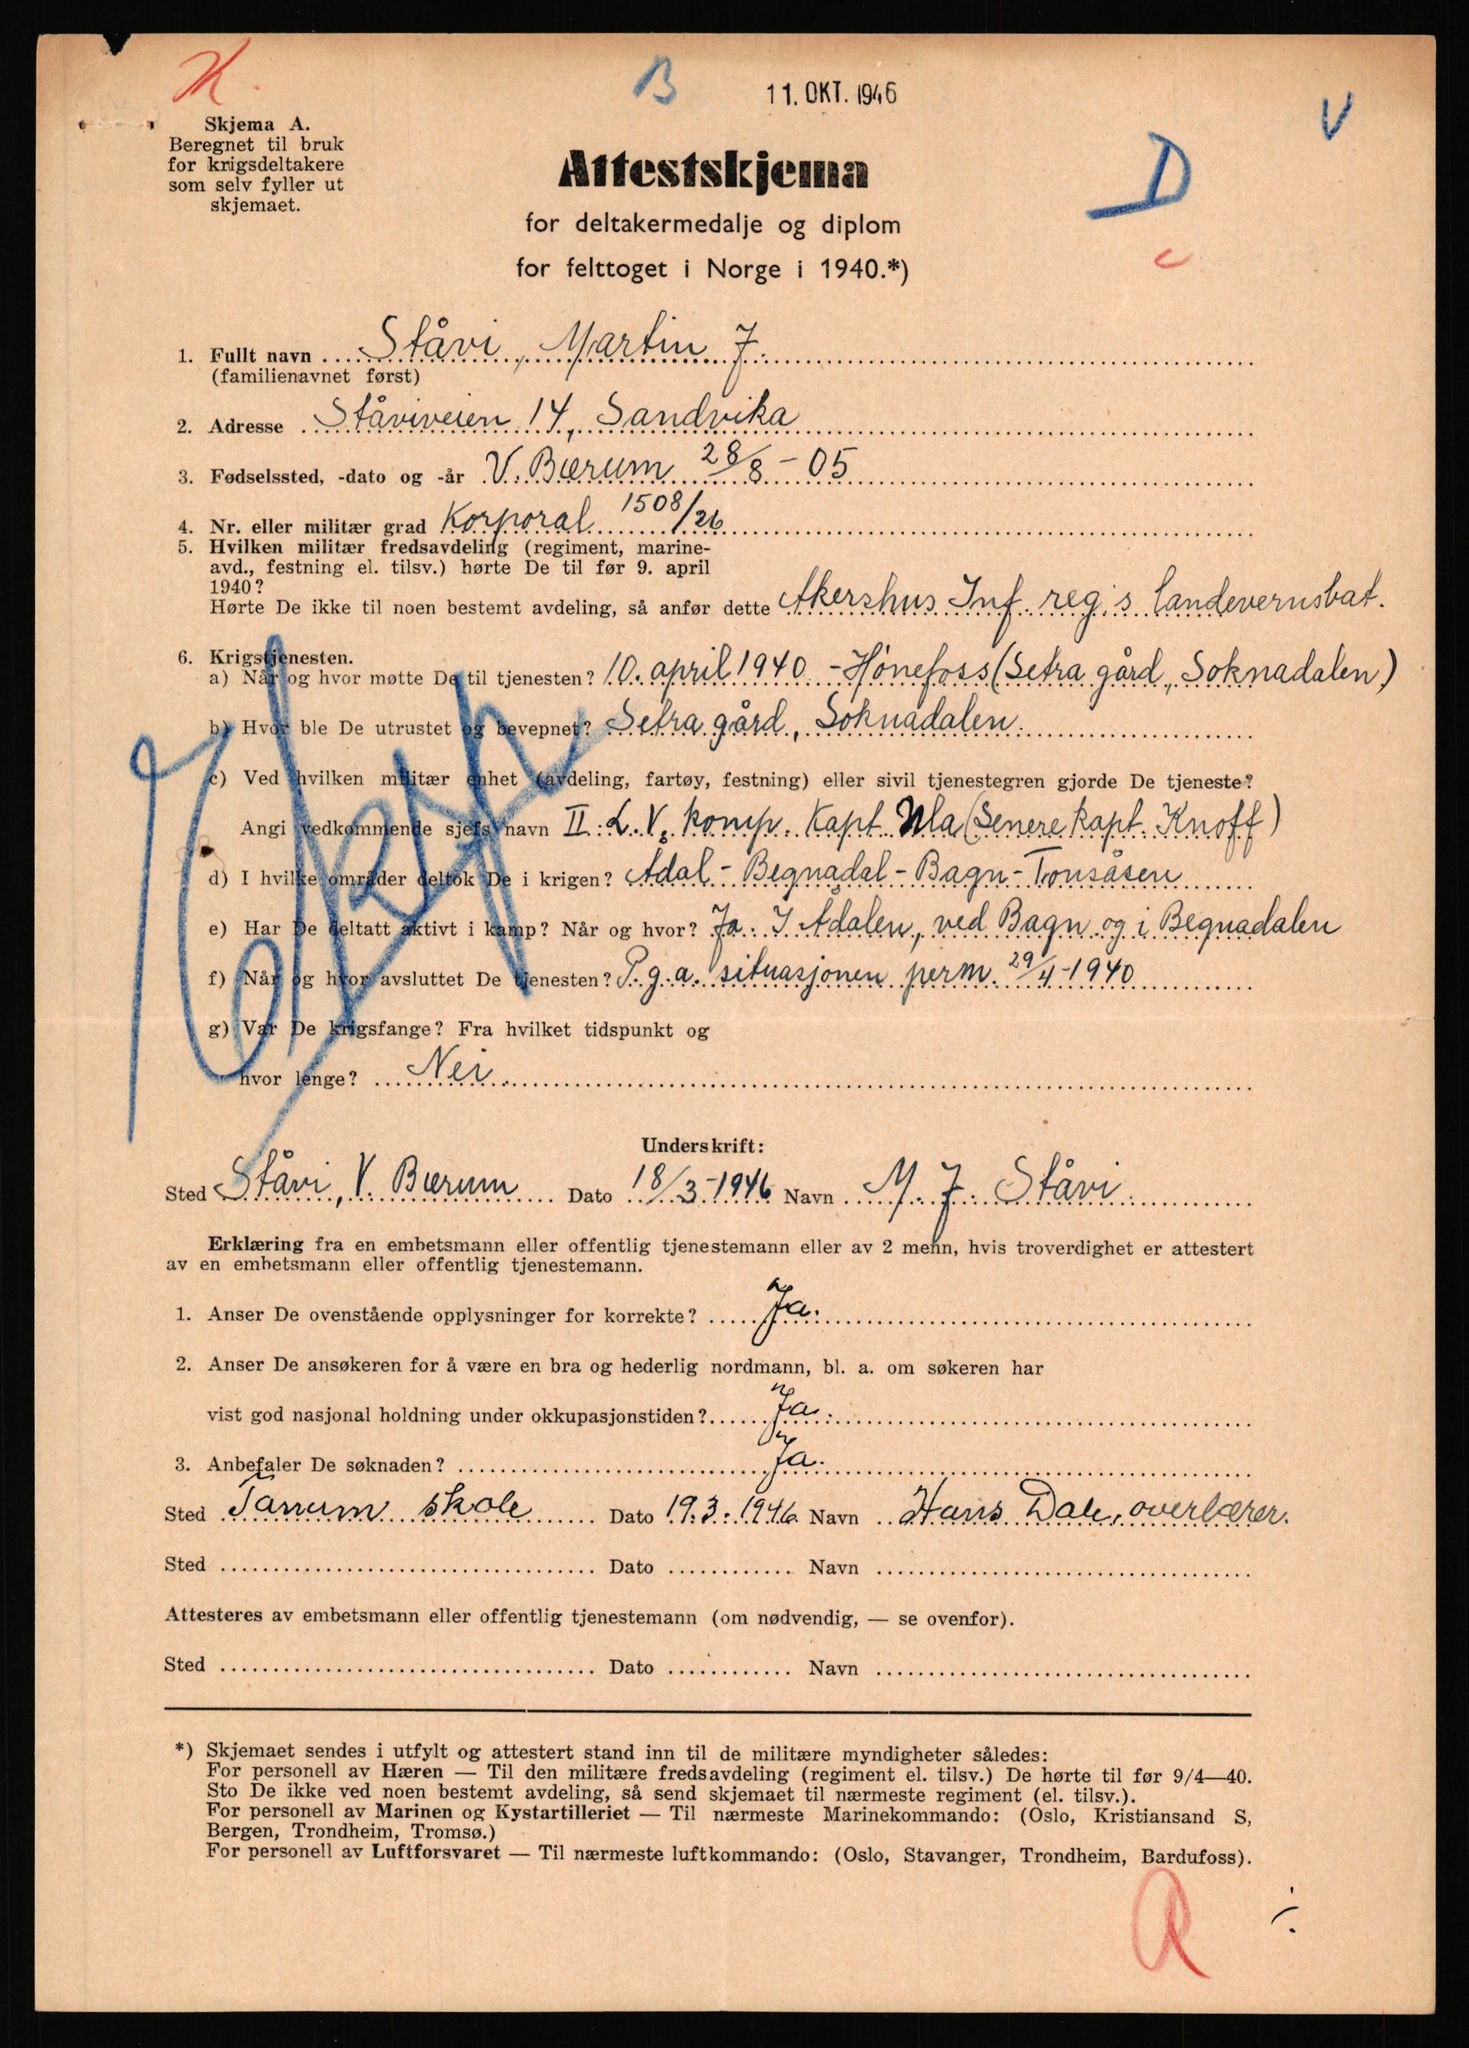 K.
B
11. OKT. 1946
V
Skjema A.
Beregnet til bruk
for krigsdeltakere
som selv fyller ut
skjemaet.
D
c
Attestskjema
for deltakermedalje og diplom
for felttoget i Norge i 1940.*)
1. Fullt navn Ståvi, Martin J.
(familienavnet først)
2. Adresse Ståviveien 14, Sandvika
3. Fødselssted, -dato og -år V. Bærum 28/8 - 05
4. Nr. eller militær grad Korporal 1508/26
5. Hvilken militær fredsavdeling (regiment, marine-
avd., festning el. tilsv.) hørte De til før 9. april
1940?
Hørte De ikke til noen bestemt avdeling, så anfør dette Akershus Inf. reg's landevernsbat.
6. Krigstjenesten.
a) Når og hvor møtte De til tjenesten? 10. april 1940 - Hønefoss (Setra gård, Soknadalen)
b) Hvor ble De utrustet og bevepnet? Setra gård, Soknadalen.
c) Ved hvilken militær enhet (avdeling, fartøy, festning) eller sivil tjenestegren gjorde De tjeneste?
Angi vedkommende sjefs navn II. L. V. komp. Kapt. (Senere kapt. Knoff)
d) I hvilke områder deltok De i krigen? Ådal - Begnadal - Bagn - Tonsåsen
e) Har De deltatt aktivt i kamp? Når og hvor? Ja. I Ådalen, ved Bagn og i Begnadalen
f) Når og hvor avsluttet De tjenesten? P.g.a. situasjonen perm. 29/4-1940
g) Var De krigsfange? Fra hvilket tidspunkt og
hvor lenge? Nei.
Underskrift:
Sted Ståvi, V. Bærum Dato 18/3-1946 Navn M. J. Ståvi
Erklæring fra en embetsmann eller offentlig tjenestemann eller av 2 menn, hvis troverdighet er attestert
av en embetsmann eller offentlig tjenestemann.
1. Anser De ovenstående opplysninger for korrekte? Ja.
2. Anser De ansøkeren for å være en bra og hederlig nordmann, bl. a. om søkeren har
vist god nasjonal holdning under okkupasjonstiden? Ja.
3. Anbefaler De søknaden? Ja.
Sted Tanum skole Dato 19.3.1946 Navn Hans Dale, overlærer.
Sted Dato Navn
Attesteres av embetsmann eller offentlig tjenestemann (om nødvendig, — se ovenfor).
Sted Dato Navn
*) Skjemaet sendes i utfylt og attestert stand inn til de militære myndigheter således:
For personell av Hæren — Til den militære fredsavdeling (regiment el. tilsv.) De hørte til før 9/4—40.
Sto De ikke ved noen bestemt avdeling, så send skjemaet til nærmeste regiment (el. tilsv.).
For personell av Marinen og Kystartilleriet — Til nærmeste Marinekommando: (Oslo, Kristiansand S,
Bergen, Trondheim, Tromsø.)
For personell av Luftforsvaret — Til nærmeste luftkommando: (Oslo, Stavanger, Trondheim, Bardufoss).